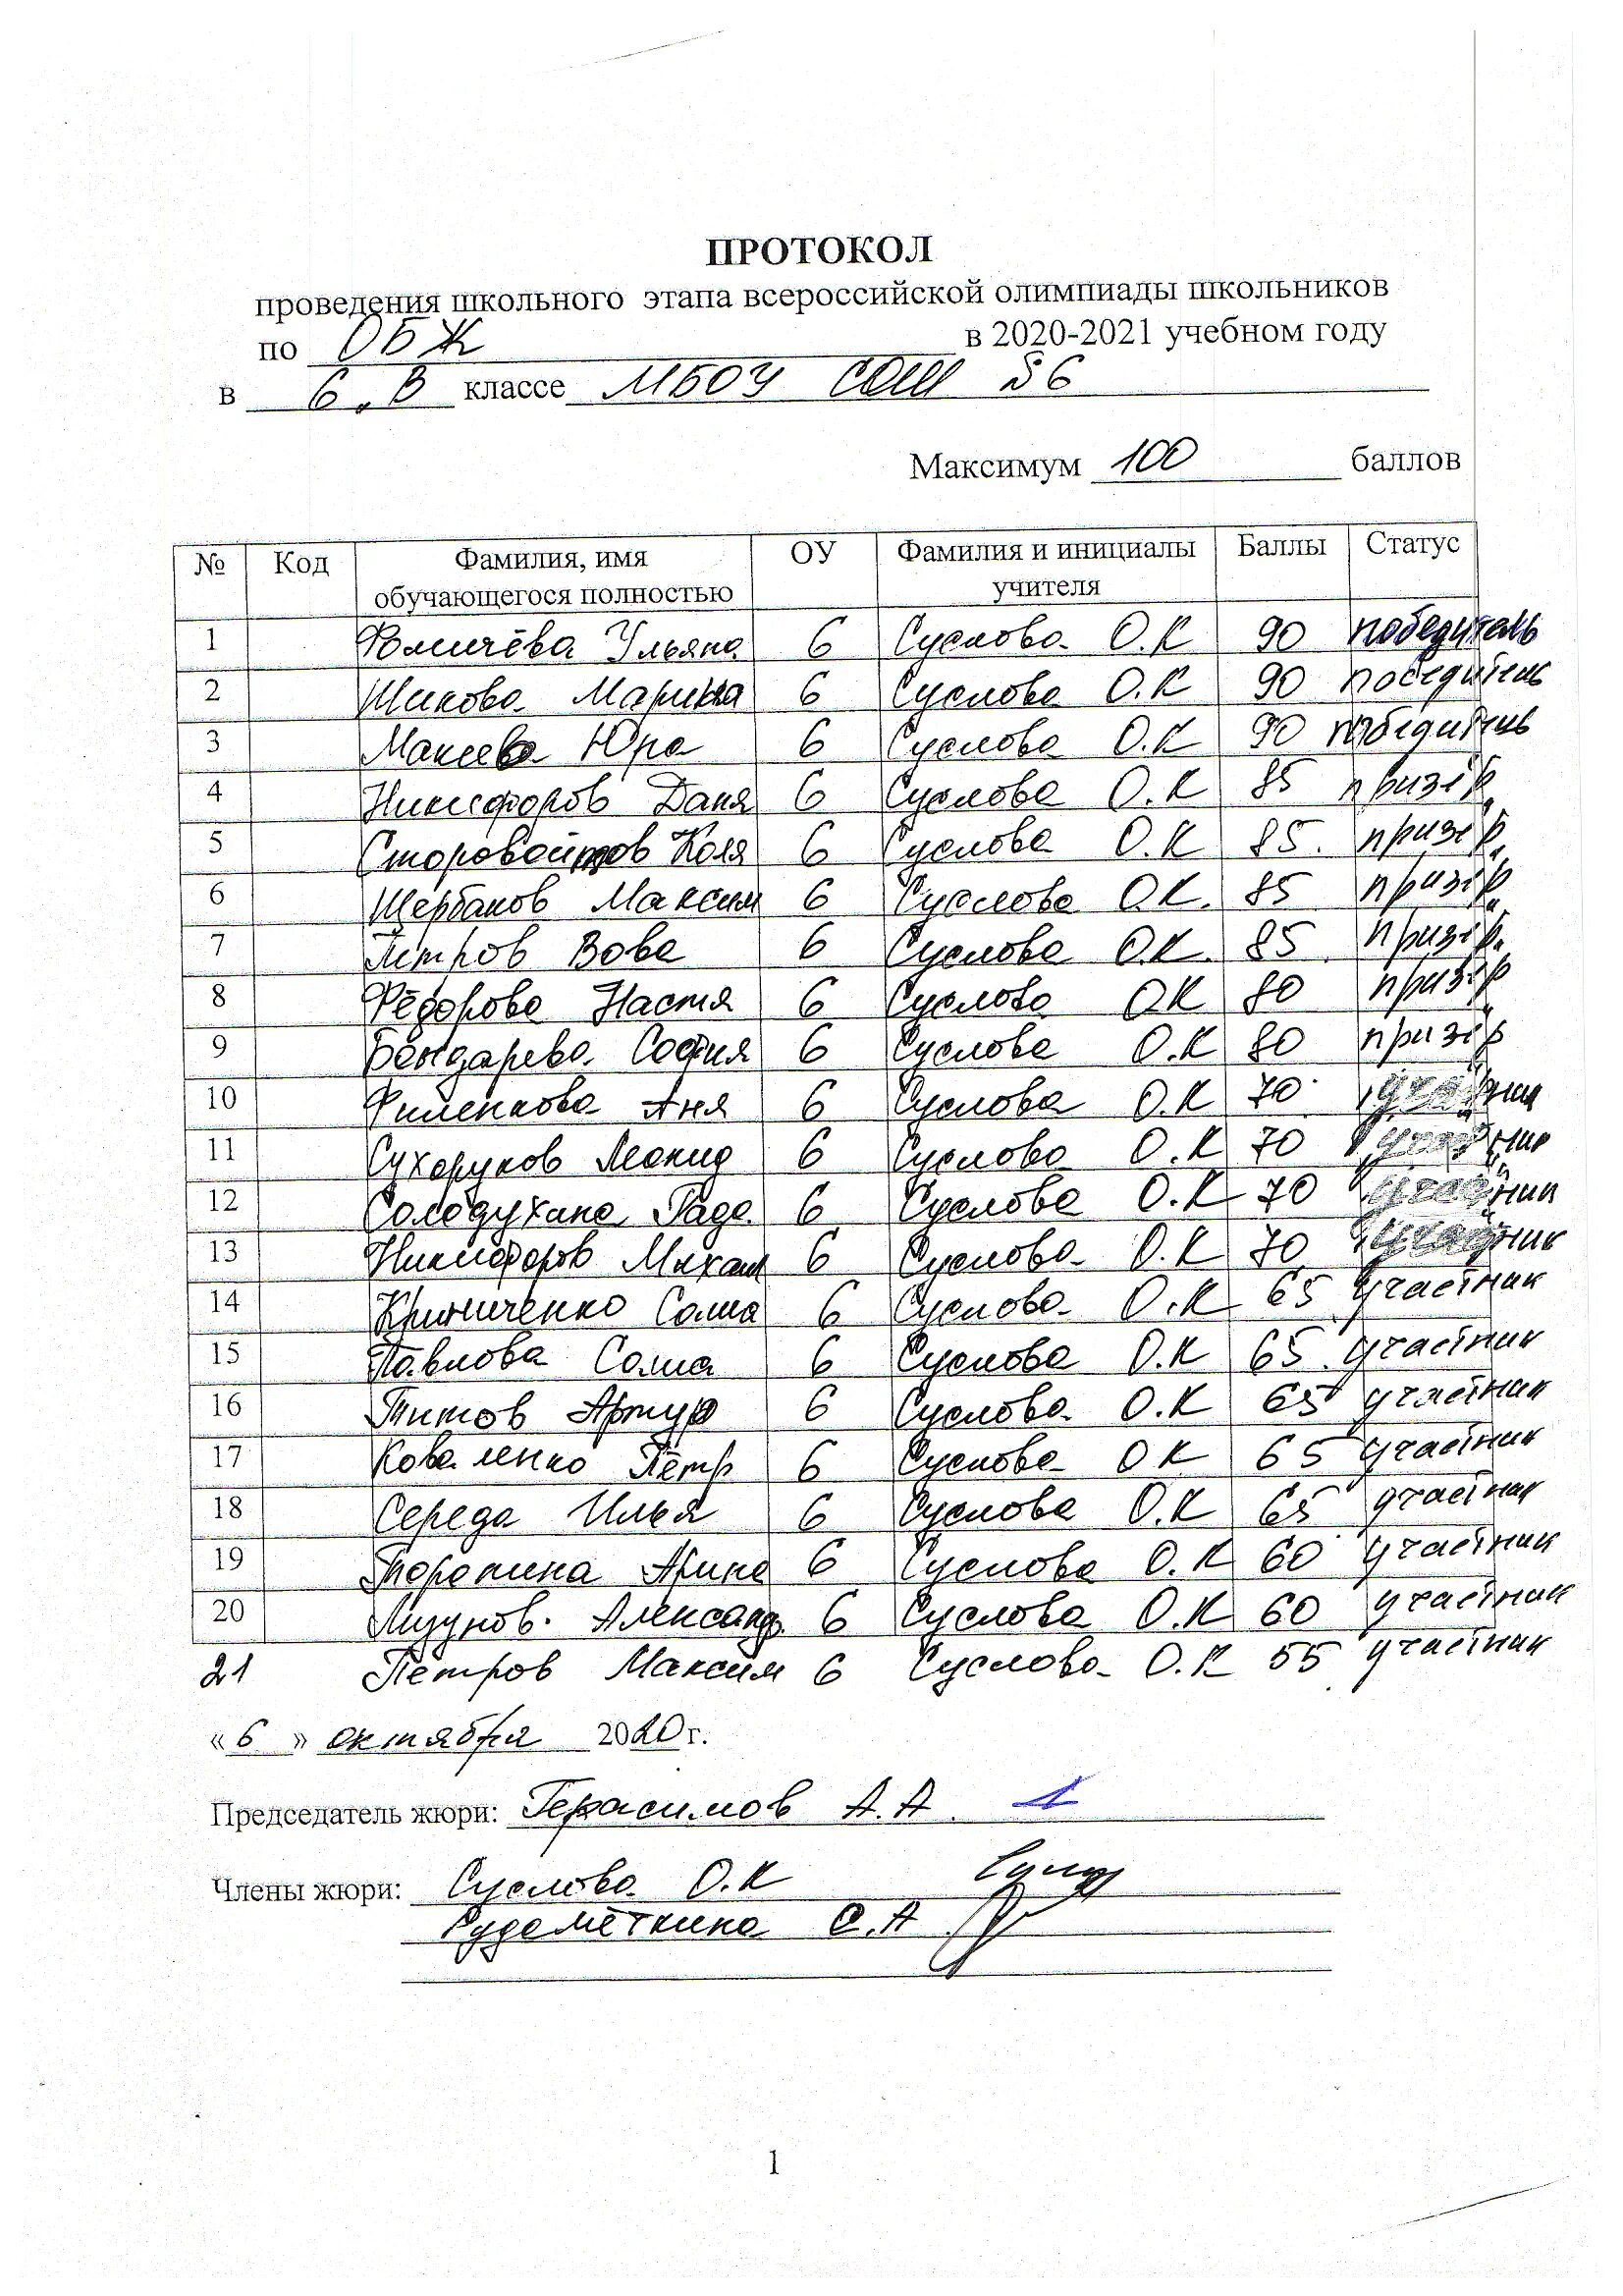 ПРОТОКОЛ
проведения школьного этапа всероссийской олимпиады школьников
по ОБЖ в 2020-2021 учебном году
в 6 . В классе МБОУ СОШ №6
Максимум 100 баллов
№ Код Фамилия, имя обучающегося полностью ОУ Фамилия и инициалы учителя Баллы Статус
1 Фомичёва Ульяна 6 Суслова О.К 90 победитель
2 Шикова Марина 6 Суслова О.К 90 победитель
3 Макеева Юра 6 Суслова О.К 90 победитель
4 Никифоров Даня 6 Суслова О.К 85 призёр
5 Старовойтов Коля 6 Суслова О.К 85. призёр
6 Щербаков Максим 6 Суслова О.К. 85 призёр
7 Петров Вова 6 Суслова О.К. 85 призёр
8 Фёдорова Настя 6 Суслова О.К 80 призёр
9 Бондарева София 6 Суслова О.К 80 призёр
10 Филенкова Аня 6 Суслова О.К 70 участник
11 Сухоруков Леонид 6 Суслова О.К 70 участник
12 Солодухина Рада 6 Суслова О.К 70 участник
13 Никифоров Михаил 6 Суслова О.К 70 участник
14 Криниченко Саша 6 Суслова О.К 65 участник
15 Павлова Саша 6 Суслова О.К 65. участник
16 Титов Артур 6 Суслова О.К 65 участник
17 Коваленко Пётр 6 Суслова О К 65 участник
18 Середа Илья 6 Суслова О.К 65 участник
19 Торопина Арина 6 Суслова О.К 60 участник
20 Лизунов Александр 6 Суслова О.К 60 участник
21 Петров Максим 6 Суслова О.К 55 участник
« 6 » октября 2020 г.
Председатель жюри: Герасимов А.А.
Члены жюри: Суслова О.К
Рудомёткина С.А
1